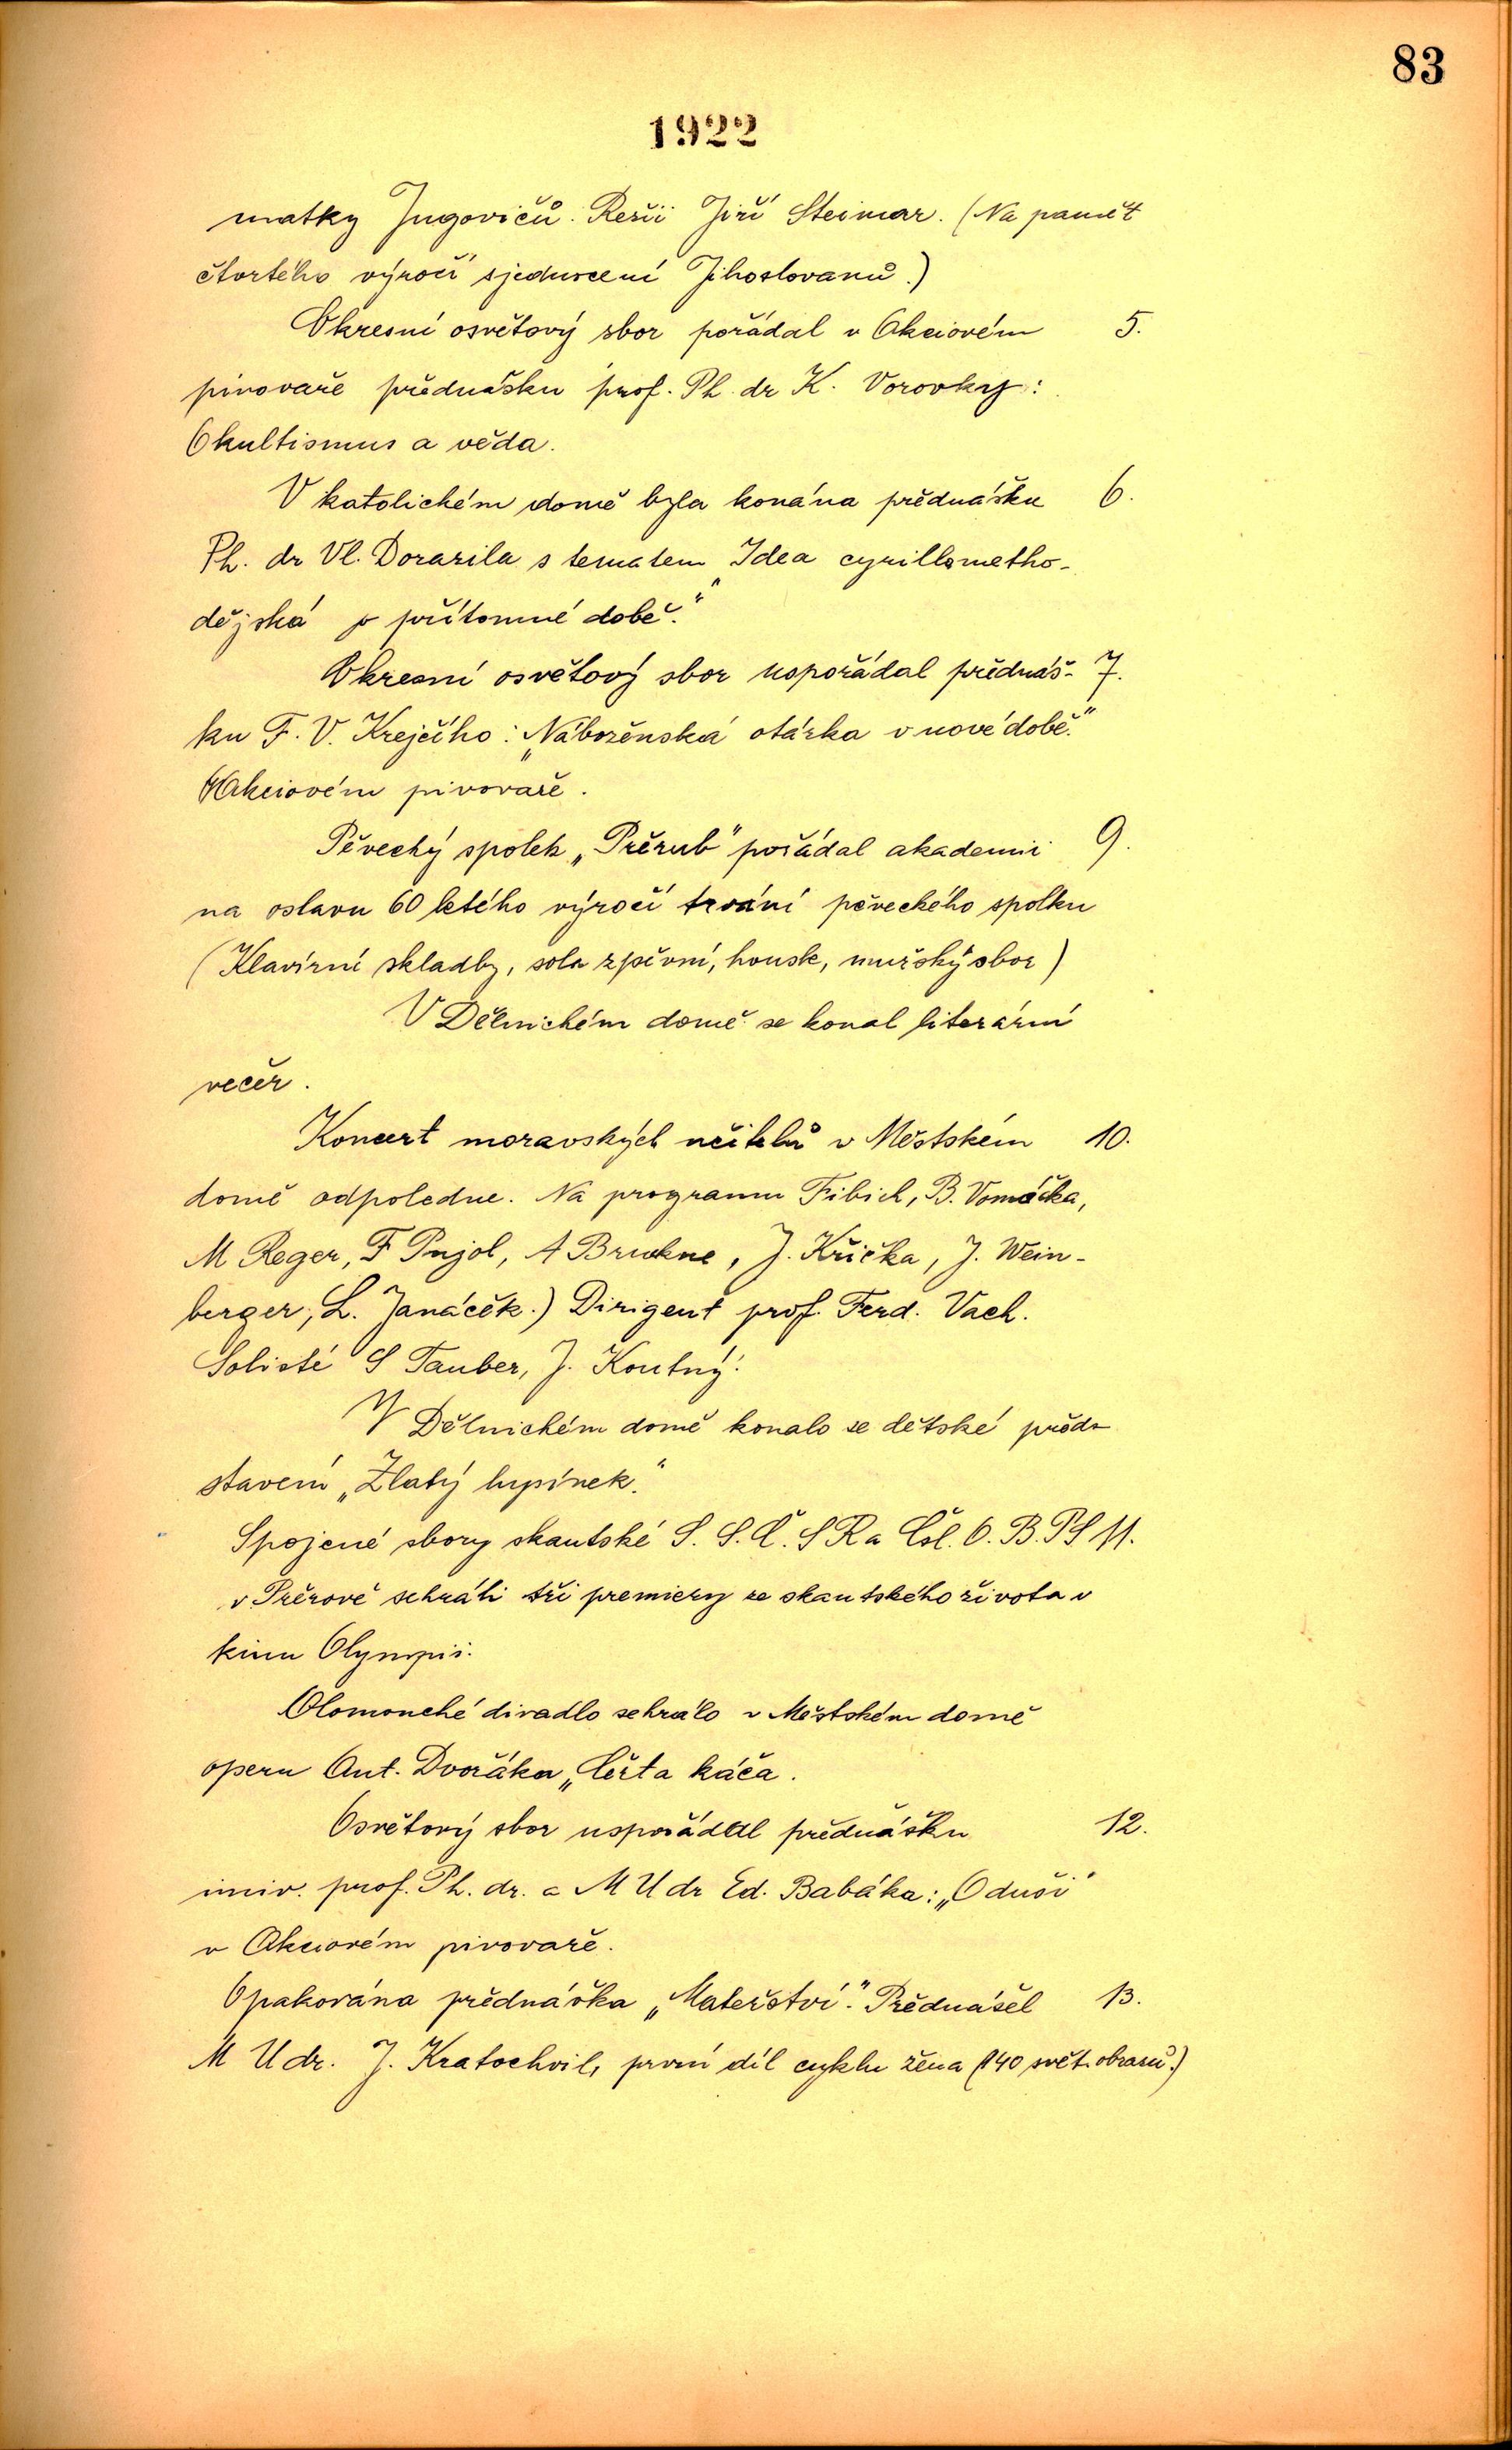 83
1922
matky Jugovičů. Režii Jiří Steimar. (Na paměť
čtvrtého výročí sjednocení Jihoslovanů.)
Okresní osvětový sbor pořádal v Akciovém 5.
pivovaře přednášku prof. Ph. dr K. Vorovky:
Okultismus a věda.
V katolickém domě byla konána přednáška 6.
Ph. dr Vl. Dorazila s tematem „Idea cyrillometho-
dějská v přítomné době."
Okresní osvětový sbor uspořádal přednáš- 7.
ku F. V. Krejčího: „Náboženská otázka v nové době."
V Akciovém pivovaře.
Pěvecký spolek „Přerub" pořádal akademii 9.
na oslavu 60 letého výročí trvání pěveckého spolku
(Klavírní skladby, sola zpěvní, housle, mužský sbor)
V Dělnickém domě se konal literární
večer.
Koncert moravských učitelů v Městském 10.
domě odpoledne. Na programu Fibich, B. Vomáčka,
M Reger, F Pujol, A Brukne, J. Křička, J. Wein-
berger, L. Janáček.) Dirigent prof. Ferd. Vach.
Solisté S Tauber, J. Koutný.
V Dělnickém domě konalo se dětské před-
stavení „Zlatý lupínek."
Spojené sbory skautské S. S. Č. S R a Čsl. O. B. PS 11.
v Přerově sehráli tři premiery ze skautského života v
kinu Olympii.
Olomoucké divadlo sehrálo v Městském domě
operu Ant. Dvořáka „Čerta káča.
Osvětový sbor uspořádal přednášku 12.
univ. prof. Ph. dr. a M U dr Ed. Babáka: „O duši"
v Akciovém pivovaře.
Opakována přednáška „Mateřství." Přednášel 13.
M U dr. J. Kratochvil, první díl cyklu žena (140 svět. obrazů.)